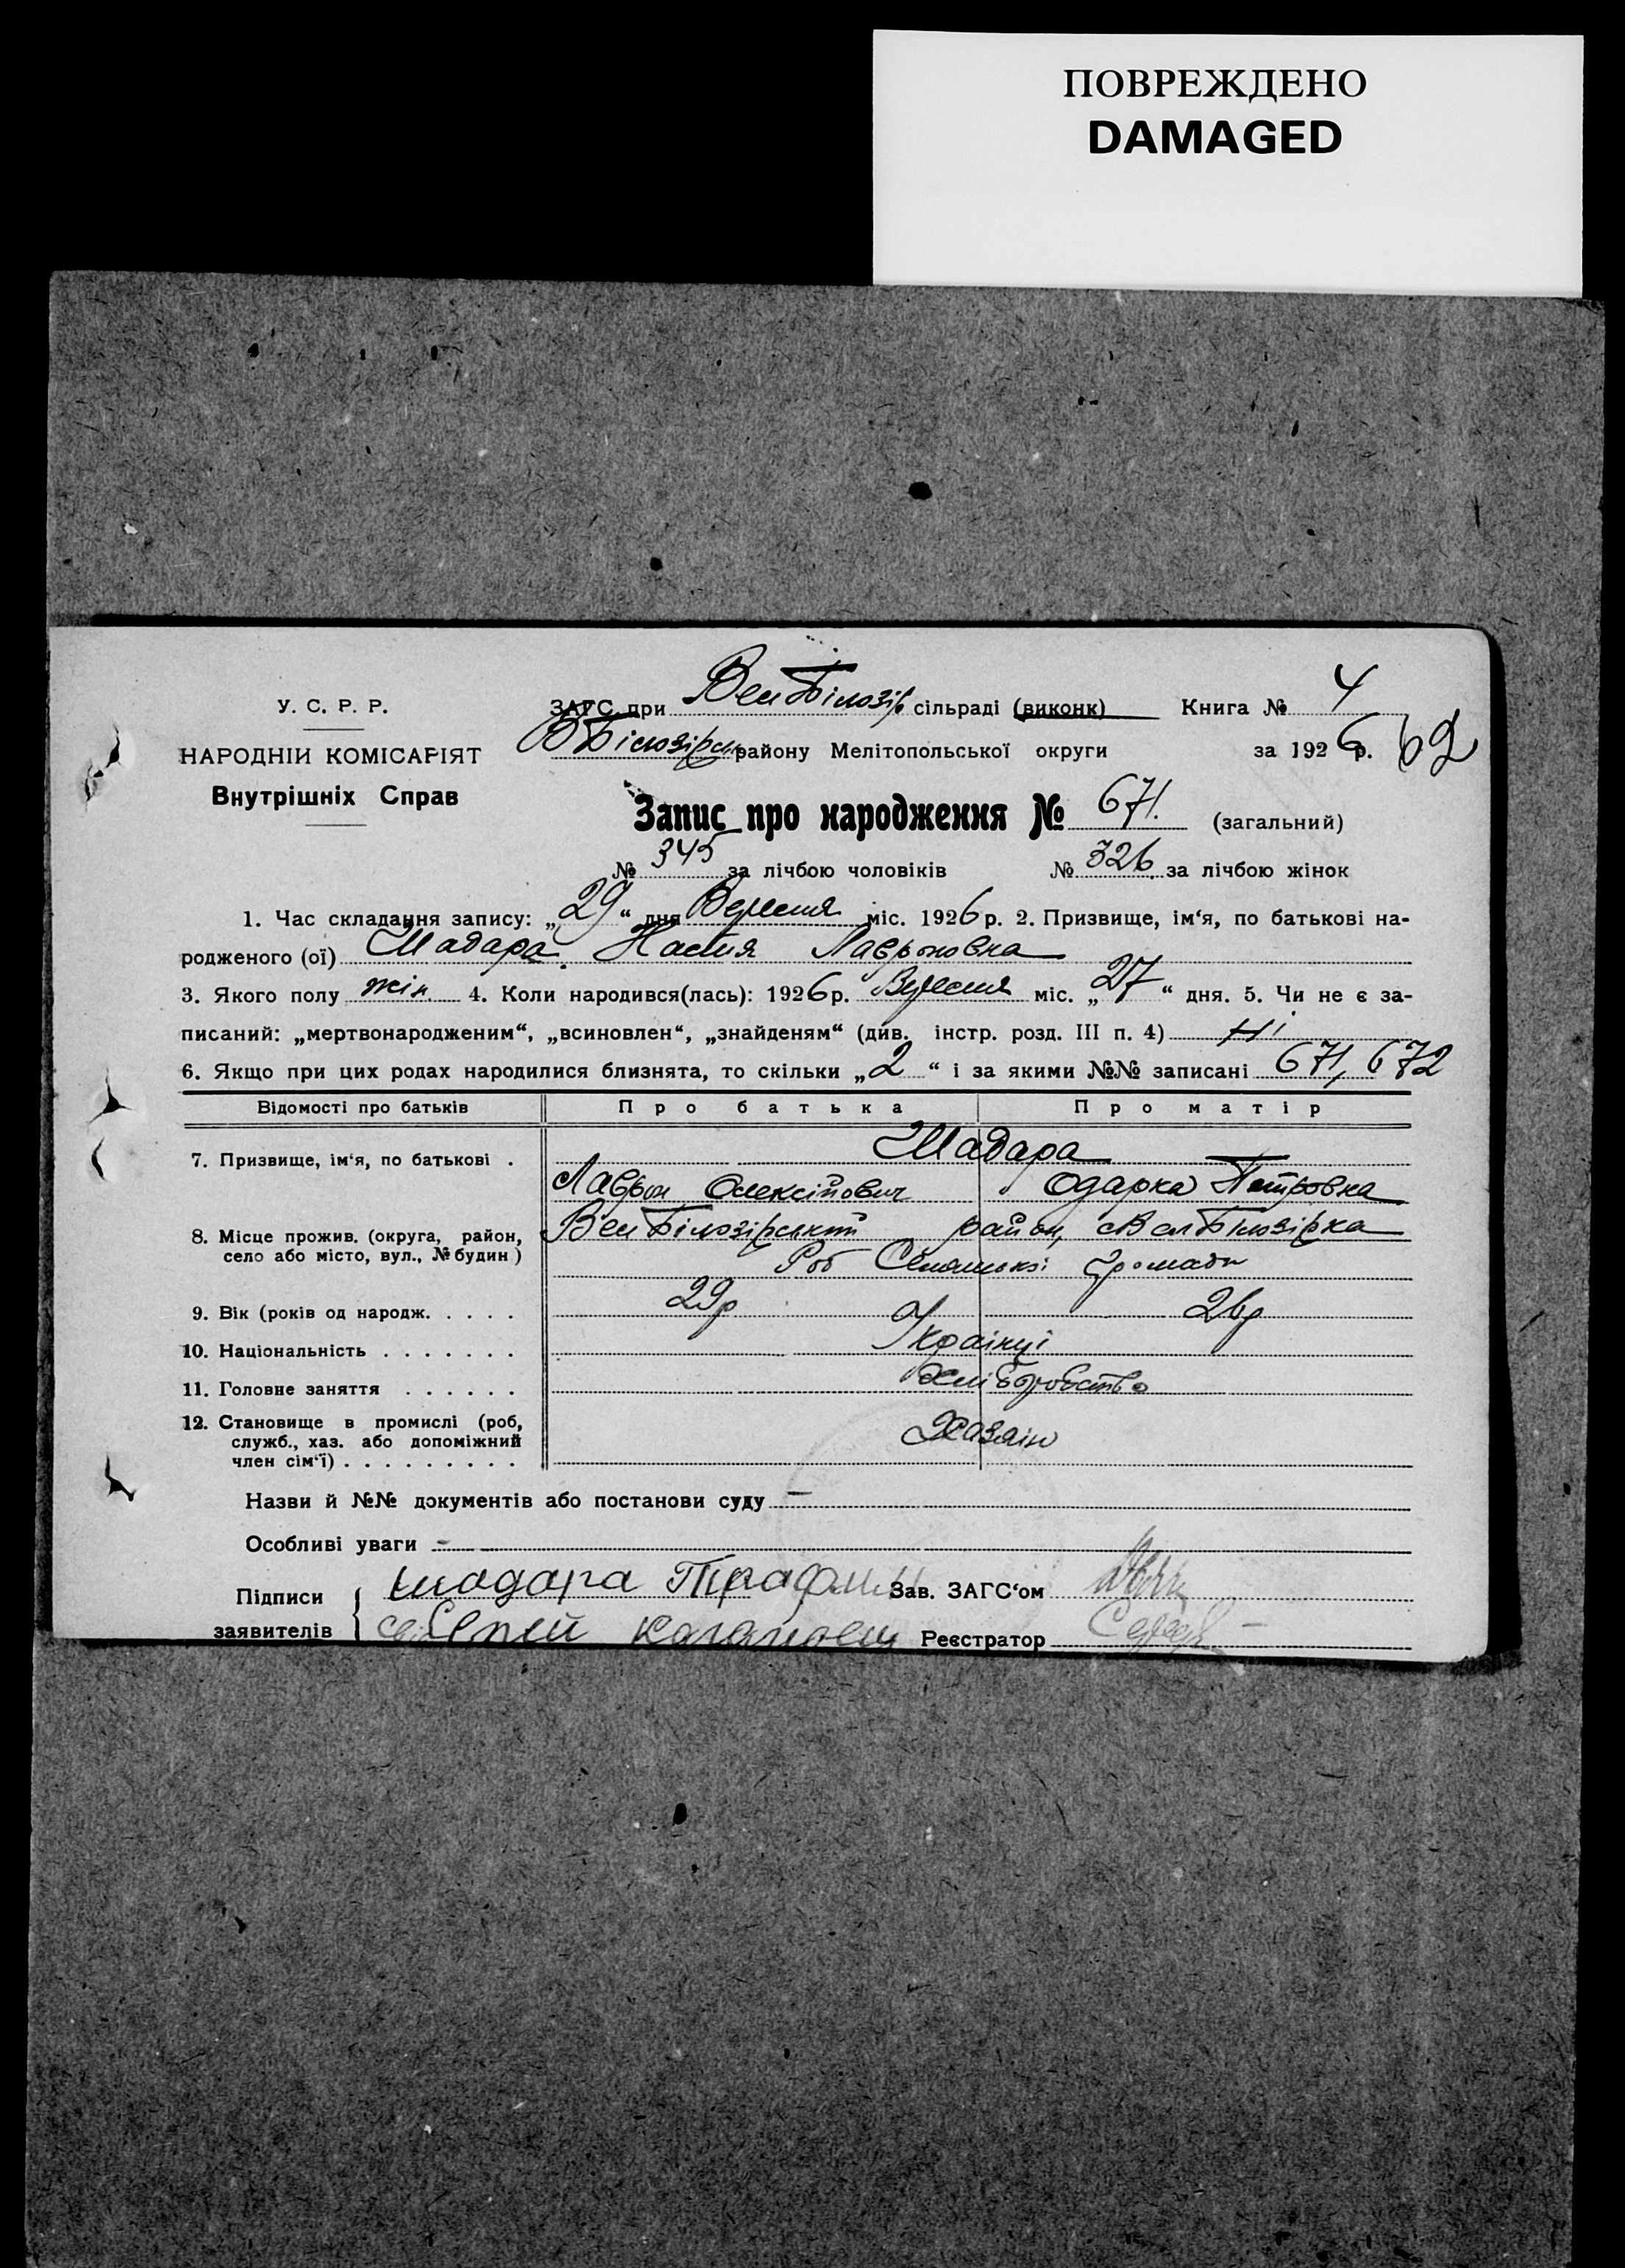 ПОВРЕЖДЕНО
DAMAGED
У. С. Р. Р.
НАРОДНІЙ КОМІСАРІЯТ
Внутрішніх Справ
ЗАГС при Вел Білозір сільраді (виконк) Книга № 4
В Білозірськ району Мелітопольської округи за 1926 р. 62
Запис про народження № 671. (загальний)
№ 345 за лічбою чоловіків № 326. за лічбою жінок
1. Час складання запису: „29“ дня Вересня міс. 1926 р. 2. Призвище, ім‘я, по батькові на-
родженого (ої) Шадара Настя Лавроновна
3. Якого полу жін. 4. Коли народився(лась): 1926 р. Вересня міс. „27“ дня. 5. Чи не є за-
писаний: „мертвонародженим“, „всиновлен“, „знайденям“ (див. інстр. розд. III п. 4) Ні
6. Якщо при цих родах народилися близнята, то скільки „2“ і за якими №№ записані 671, 672
Відомості про батьків Про батька Про матір
7. Призвище, ім‘я, по батькові . Шадара
Лаврон Олексійович Одарка Петровна
8. Місце прожив. (округа, район, село або місто, вул., № будин) Вел Білозірський район, с Вел Білозірка
Роб Селянської громади
9. Вік (років од народж. . . . . 29р 26р
10. Національність . . . . . . . Українці
11. Головне заняття . . . . . . Хліборобство
12. Становище в промислі (роб, служб., хаз. або допоміжний член сім‘ї) . . . . . . . . . Хазяїн
Назви й №№ документів або постанови суду —
Особливі уваги -
Підписи Шадара Зав. ЗАГС‘ом
заявителів Реєстратор